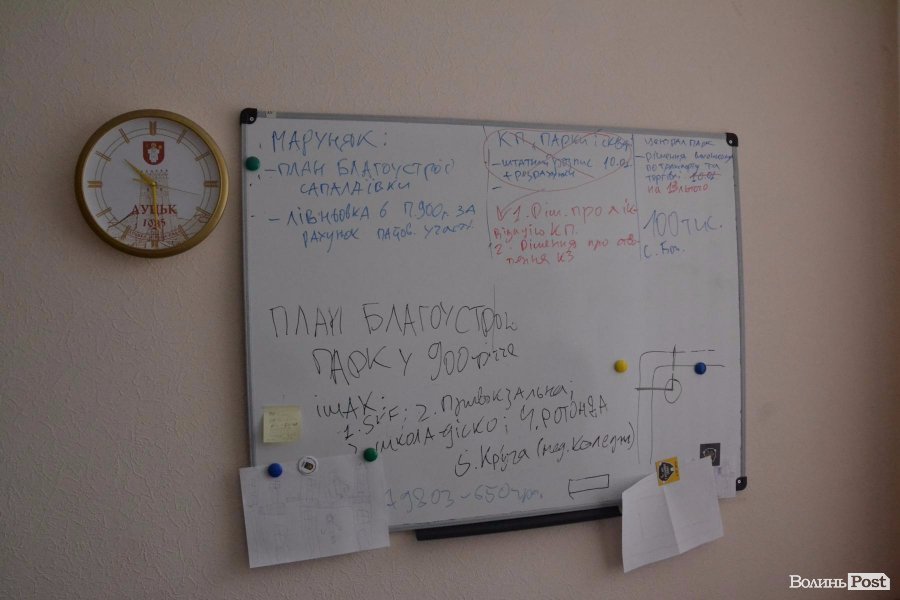 ЛУЦЬК
1085
МАРУНЯК:
- ПЛАН БЛАГОУСТРОЇ
САПАЛАЇВКИ
- ЛІВНЬОВКА б П.900р. ЗА
РАХУНОК ПАЙОВ. УЧАСТ.
КП, ПАРКИ І СКВЕР
- ШТАТНИЙ РОЗПИС 10.02
+ РОЗПОРЯДЖ
-
1. Ріш. ПРО ЛІК-
ВІДАЦІЮ КП.
2. РІШЕННЯ ПРО
КЗ
ЦЕНТРАЛ ПАРК
- РІШЕННЯ
ПО ТРАНСПОРТУ ТА
ТОРГІВЛІ 10.02
НА 13 ЛЮТОГО
100 ТИС.
С. Бог.
ПЛАН БЛАГОУСТРОЮ
ПАРКУ 900-річчя
ІШАХ:
1. SKF; 2. Привокзальна;
3. ШКОЛА-ДІСКО; 4. РОТОНДА
5. Круча (мед. коледж)
79803 - 650 грн.
ВОЛИНЬ Post